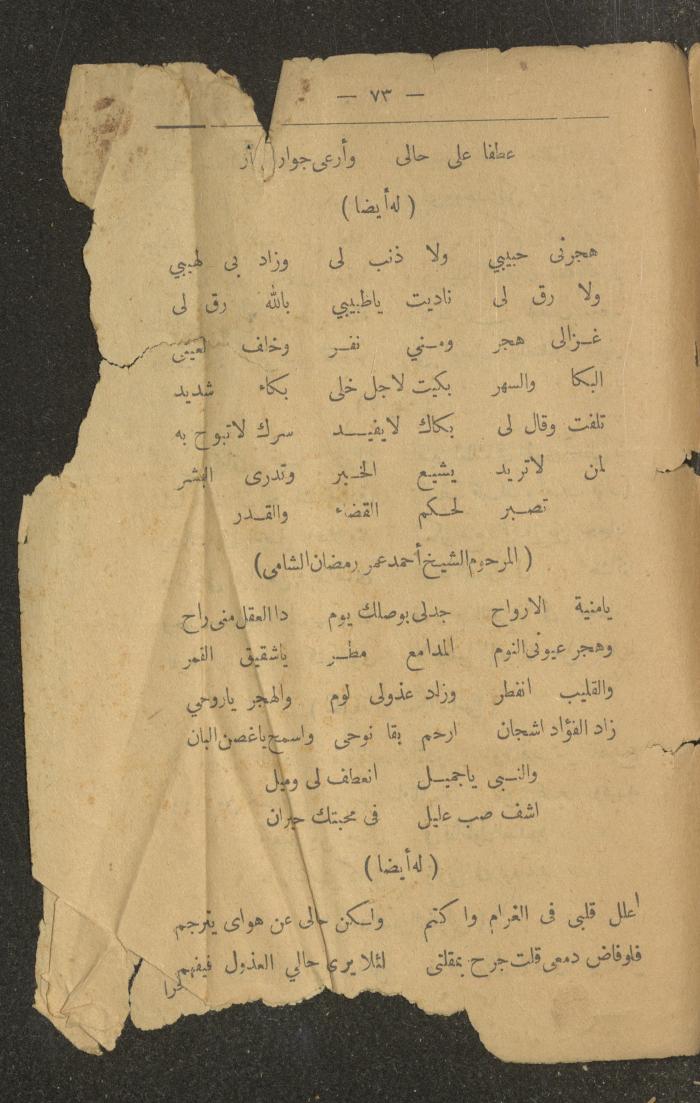 — ٧٣ —
عطفا على حالى وأرعى جوار
( له أيضا )
هجرنى حبيبي ولا ذنب لى وزاد بى لهيبي
ولا رق لى ناديت ياطبيبي بالله رق لى
غـزالى هجر ومـني نفـر وخلف لعينى
البكا والسهر بكيت لاجل خلى بكاء شديد
تلفت وقال لى بكاك لايفيـــد سرك لاتبوح به
لمن لاتريد يشيع الخـبر وتدرى البشر
تصـبر لحـكم القضاء والقـدر
( المرحوم الشيخ أحمد عمر رمضان الشامى )
يامنية الارواح جدلى بوصلك يوم دا العقل منى راح
وهجر عيونى النوم المدامع مطـر ياشقيق القمر
والقليب انفطر وزاد عذولى لوم والهجر ياروحي
زاد الفؤاد اشجان ارحم بقا نوحى واسمح ياغصن البان
والنـبى ياجميـل انعطف لى وميل
اشف صب عليل فى محبتك حيران
( له أيضا )
اعلل قلبى فى الغرام واكتم ولـكن حالى عن هواى يترجم
فلوفاض دمعى قلت جرح بمقلتى لئلا يرى حالي العذول فيفهم